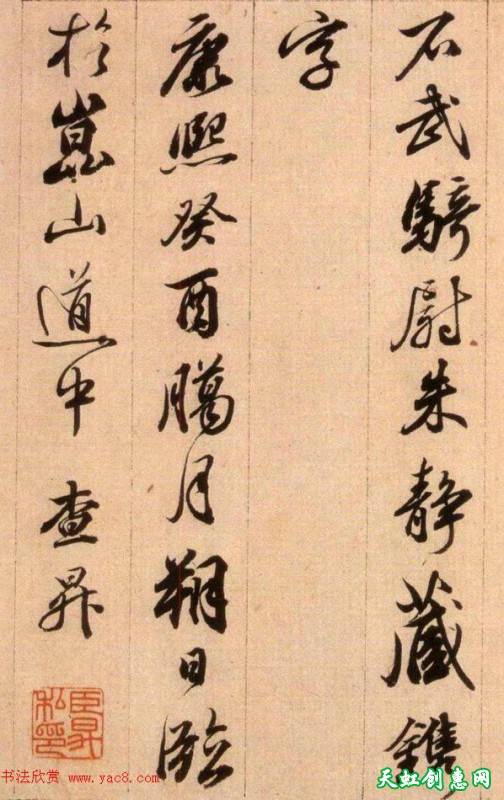 石武騎尉朱静藏鐫
字
康熙癸酉臈月朔日臨
於崑山道中 查昇
臣昇私印
书法欣赏 www.yac8.com
天虹创惠网